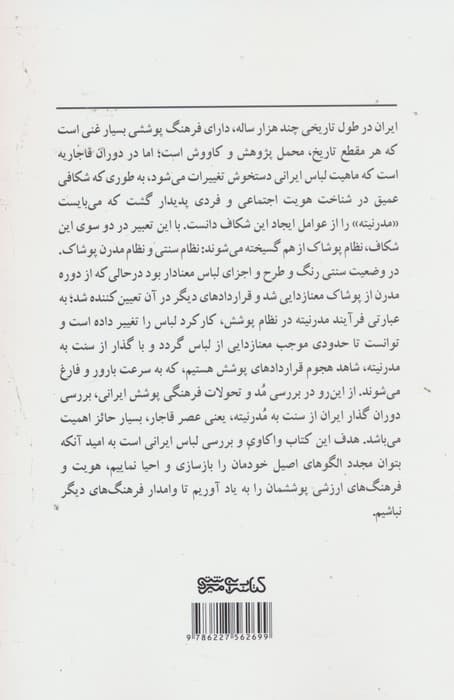 ایران در طول تاریخی چند هزار ساله، دارای فرهنگ پوششی بسیار غنی است
که هر مقطع تاریخ، محمل پژوهش و کاووش است؛ اما در دوران قاجاریه
است که ماهیت لباس ایرانی دستخوش تغییرات می‌شود، به طوری که شکافی
عمیق در شناخت هویت اجتماعی و فردی پدیدار گشت که می‌بایست
«مدرنیته» را از عوامل ایجاد این شکاف دانست. با این تعبیر در دو سوی این
شکاف، نظام پوشاک از هم گسیخته می‌شوند: نظام سنتی و نظام مدرن پوشاک.
در وضعیت سنتی رنگ و طرح و اجزای لباس معنادار بود درحالی‌که از دوره
مدرن از پوشاک معنازدایی شد و قراردادهای دیگر در آن تعیین‌کننده شد؛ به
عبارتی فرآیند مدرنیته در نظام پوشش، کارکرد لباس را تغییر داده است و
توانست تا حدودی موجب معنازدایی از لباس گردد و با گذار از سنت به
مدرنیته، شاهد هجوم قراردادهای پوشش هستیم، که به سرعت بارور و فارغ
می‌شوند. از این‌رو در بررسی مُد و تحولات فرهنگی پوشش ایرانی، بررسی
دوران گذار ایران از سنت به مُدرنیته، یعنی عصر قاجار، بسیار حائز اهمیت
می‌باشد. هدف این کتاب واکاوی و بررسی لباس ایرانی است به امید آنکه
بتوان مجدد الگوهای اصیل خودمان را بازسازی و احیا نماییم، هویت و
فرهنگ‌های ارزشی پوششمان را به یاد آوریم تا وامدار فرهنگ‌های دیگر
نباشیم.
9 786227 562699